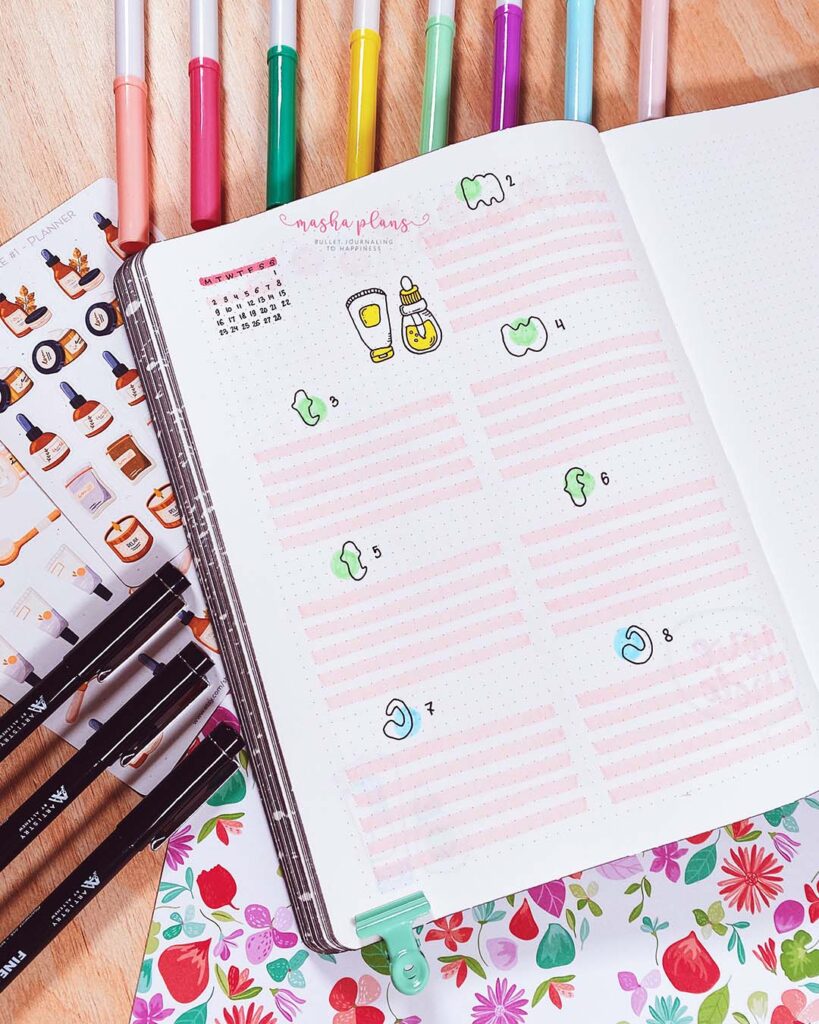 masha plans
BULLET JOURNALING
TO HAPPINESS
M T W T F S S
1
2 3 4 5 6 7 8
9 10 11 12 13 14 15
16 17 18 19 20 21 22
23 24 25 26 27 28
2
3
4
5
6
7
8
#1 - PLANNER
RELAX
ARTISTRY
BY ALTENEW
ARTISTRY
BY ALTENEW
ARTISTRY
BY ALTENEW
FINE